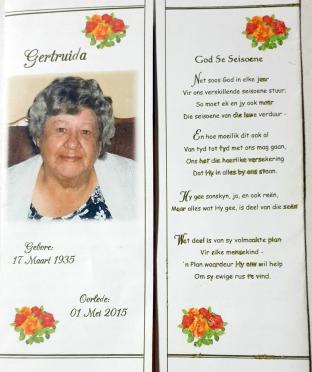 Gertruida
Gebore:
17 Maart 1935
Oorlede:
01 Mei 2015
God Se Seisoene
Net soos God in elke jaar
Vir ons verskillende seisoene stuur;
So moet ek en jy ook maar
Die seisoene van die lewe verduur -
En hoe moeilik dit ook al
Van tyd tot tyd met ons mag gaan,
Ons het die heerlike versekering
Dat Hy in alles by ons staan.
Hy gee sonskyn, ja, en ook reën,
Maar alles wat Hy gee, is deel van die seën
Wat deel is van sy volmaakte plan
Vir elke mensekind -
'n Plan waardeur Hy ons wil help
Om sy ewige rus te vind.